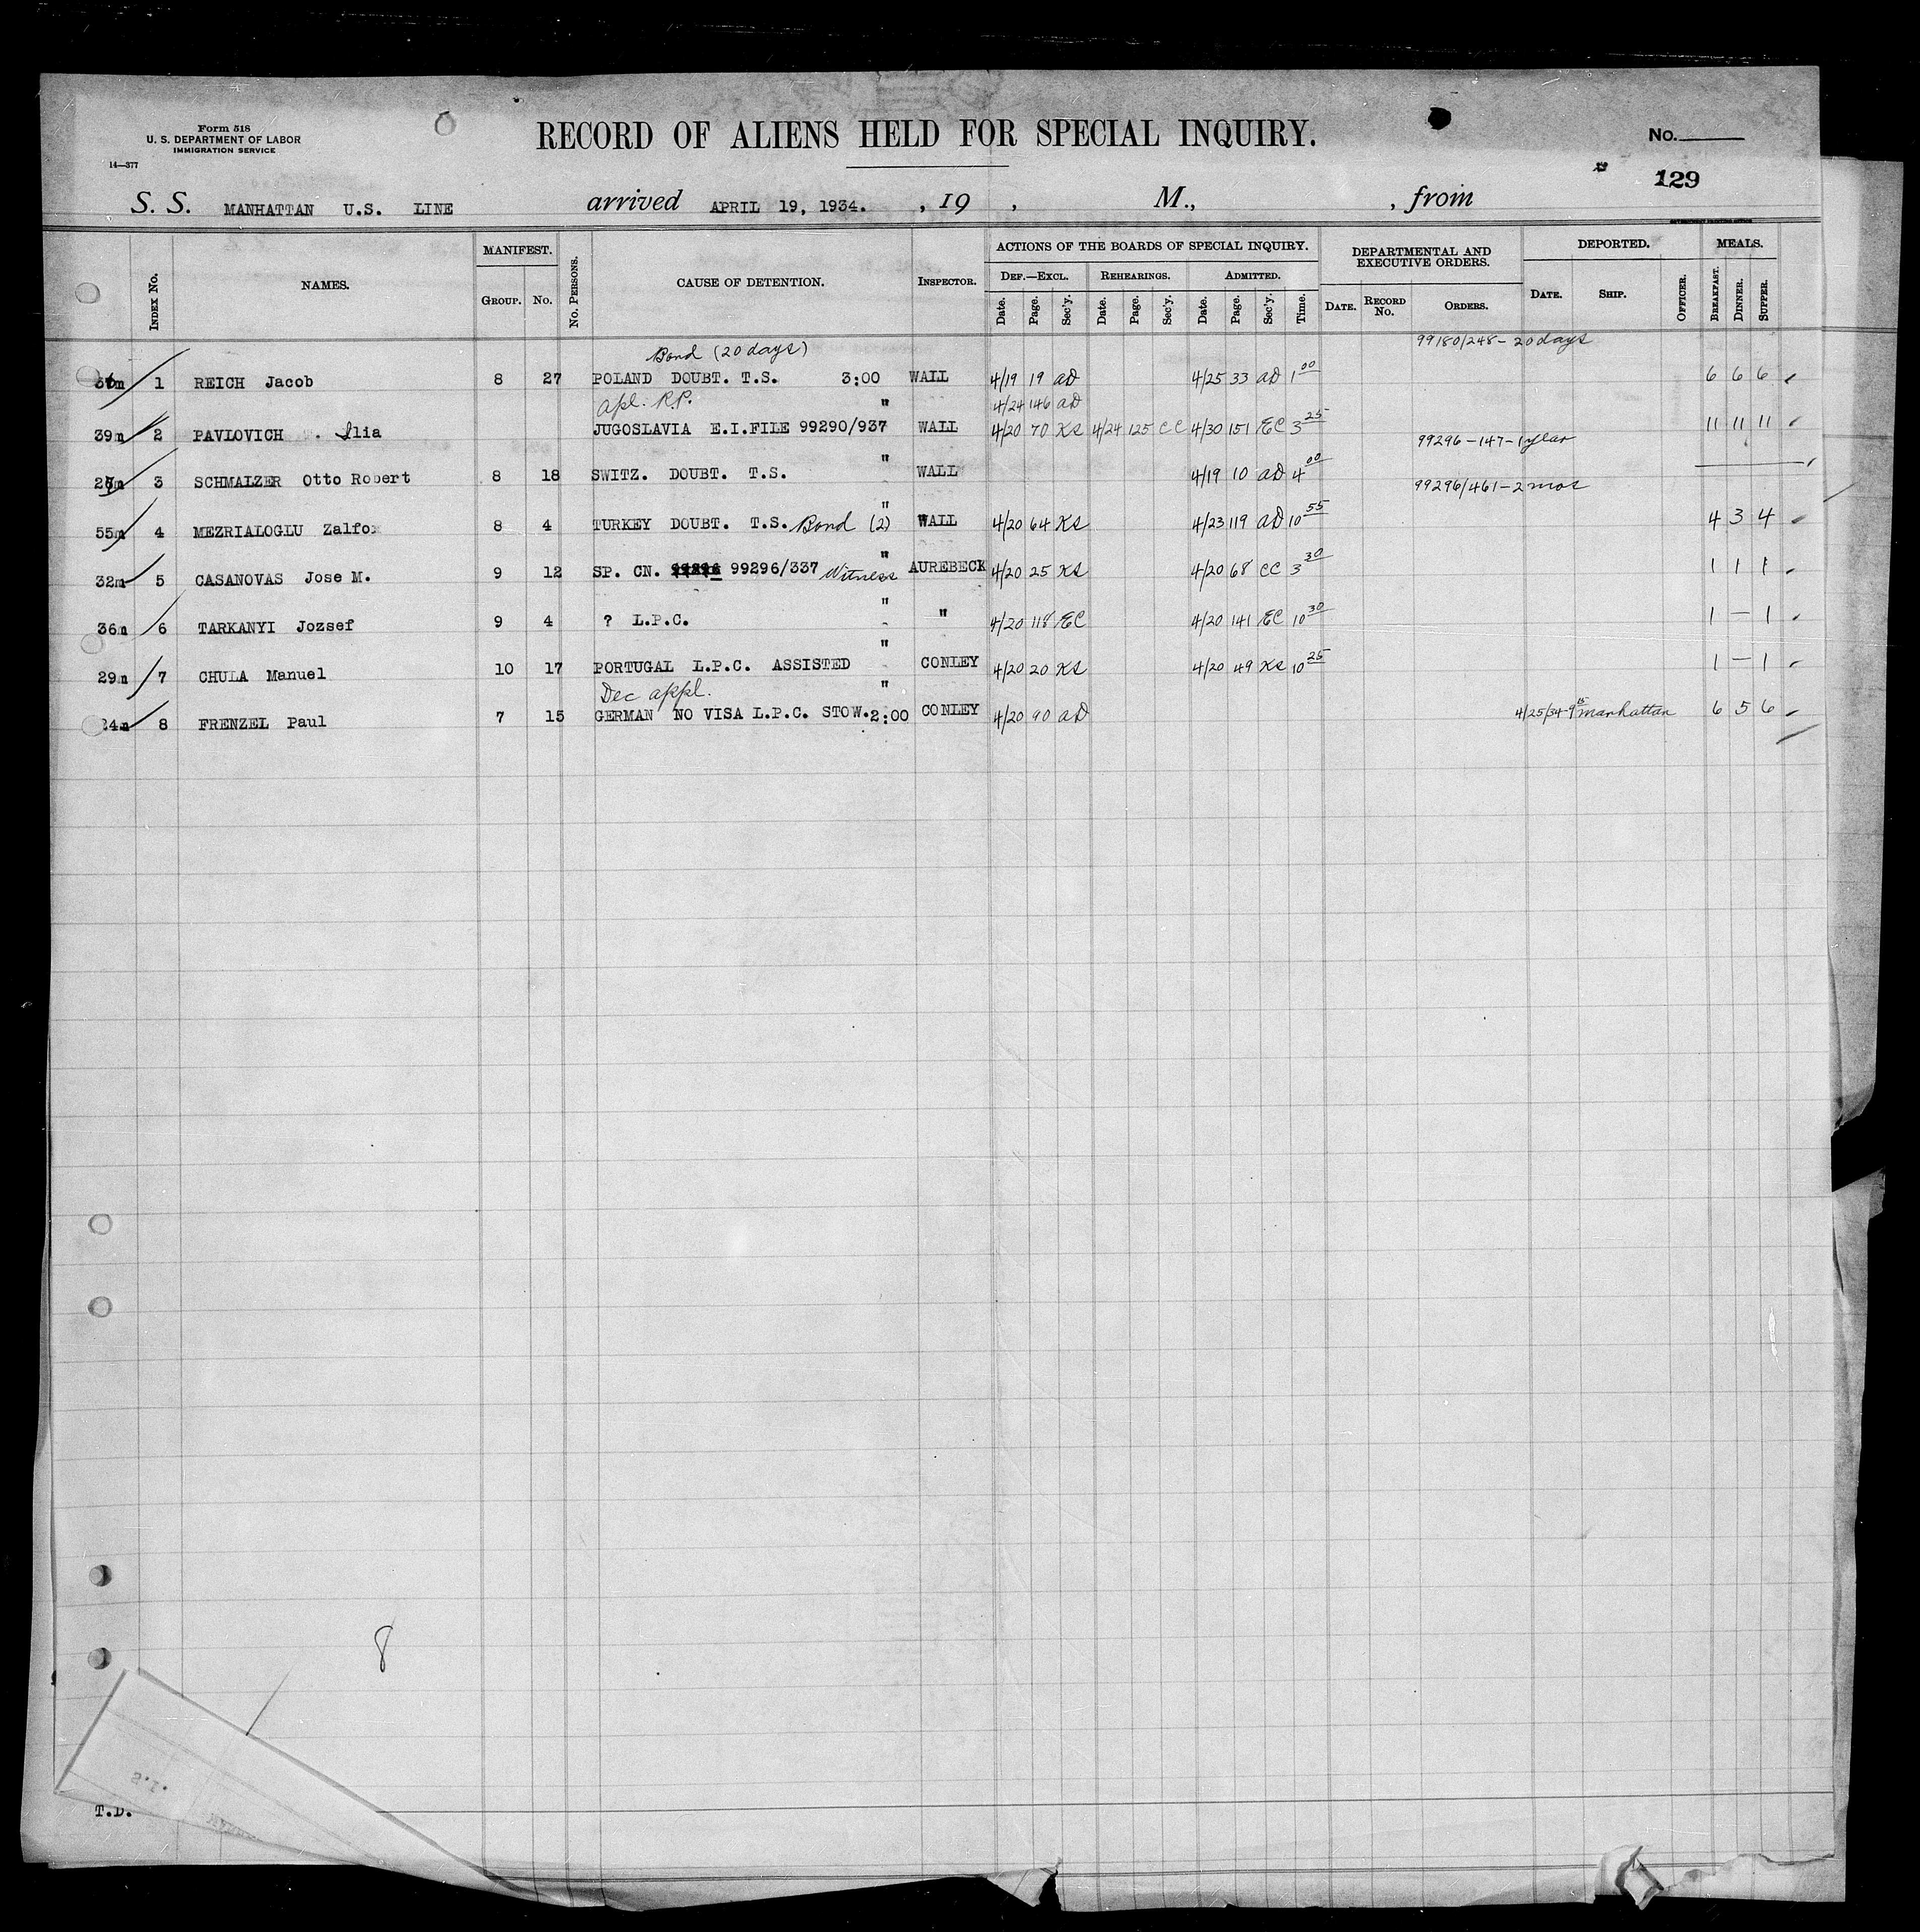 Form 518
U. S. DEPARTMENT OF LABOR
IMMIGRATION SERVICE
14—377
RECORD OF ALIENS HELD FOR SPECIAL INQUIRY.
No.
129
S. S. MANHATTAN U.S. LINE arrived APRIL 19, 1934. , 19 , M., , from
INDEX No. NAMES. MANIFEST. GROUP. No. No. PERSONS. CAUSE OF DETENTION. INSPECTOR. ACTIONS OF THE BOARDS OF SPECIAL INQUIRY. DEF.—EXCL. Date. Page. Sec'y. REHEARINGS. Date. Page. Sec'y. ADMITTED. Date. Page. Sec'y. Time. DEPARTMENTAL AND EXECUTIVE ORDERS. DATE. RECORD No. ORDERS. DEPORTED. DATE. SHIP. OFFICER. MEALS. BREAKFAST. DINNER. SUPPER.
Bond (20 days) 99180/248 - 20 days
1 REICH Jacob 8 27 POLAND DOUBT. T.S. 3:00 WALL 4/19 19 AD 4/25 33 AD 1 00 6 6 6
Apl. R.P. " 4/24 146 AD
39m 2 PAVLOVICH Ilia JUGOSLAVIA E.I.FILE 99290/937 WALL 4/20 70 KS 4/24 125 CC 4/30 151 EC 3 25 11 11 11
99296-147-1 year
" 
3 SCHMALZER Otto Robert 8 18 SWITZ. DOUBT. T.S. WALL 4/19 10 AD 4 00
99296/461-2 mos
"
55m 4 MEZRIALOGLU Zalfo 8 4 TURKEY DOUBT. T.S. Bond (2) WALL 4/20 64 KS 4/23 119 AD 10 55 4 3 4
"
32m 5 CASANOVAS Jose M. 9 12 SP. CN. 99296 99296/337 Witness AUREBECK 4/20 25 KS 4/20 68 CC 3 30 1 1 1
"
36m 6 TARKANYI Jozsef 9 4 ? L.P.C. " 4/20 118 EC 4/20 141 EC 10 30 1 — 1
"
29m 7 CHULA Manuel 10 17 PORTUGAL L.P.C. ASSISTED CONLEY 4/20 20 KS 4/20 49 KS 10 25 1 — 1
Dec appl. "
24m 8 FRENZEL Paul 7 15 GERMAN NO VISA L.P.C. STOW. 2:00 CONLEY 4/20 90 AD 4/25/34 Manhattan 6 5 6
8
S.I.
T.D.